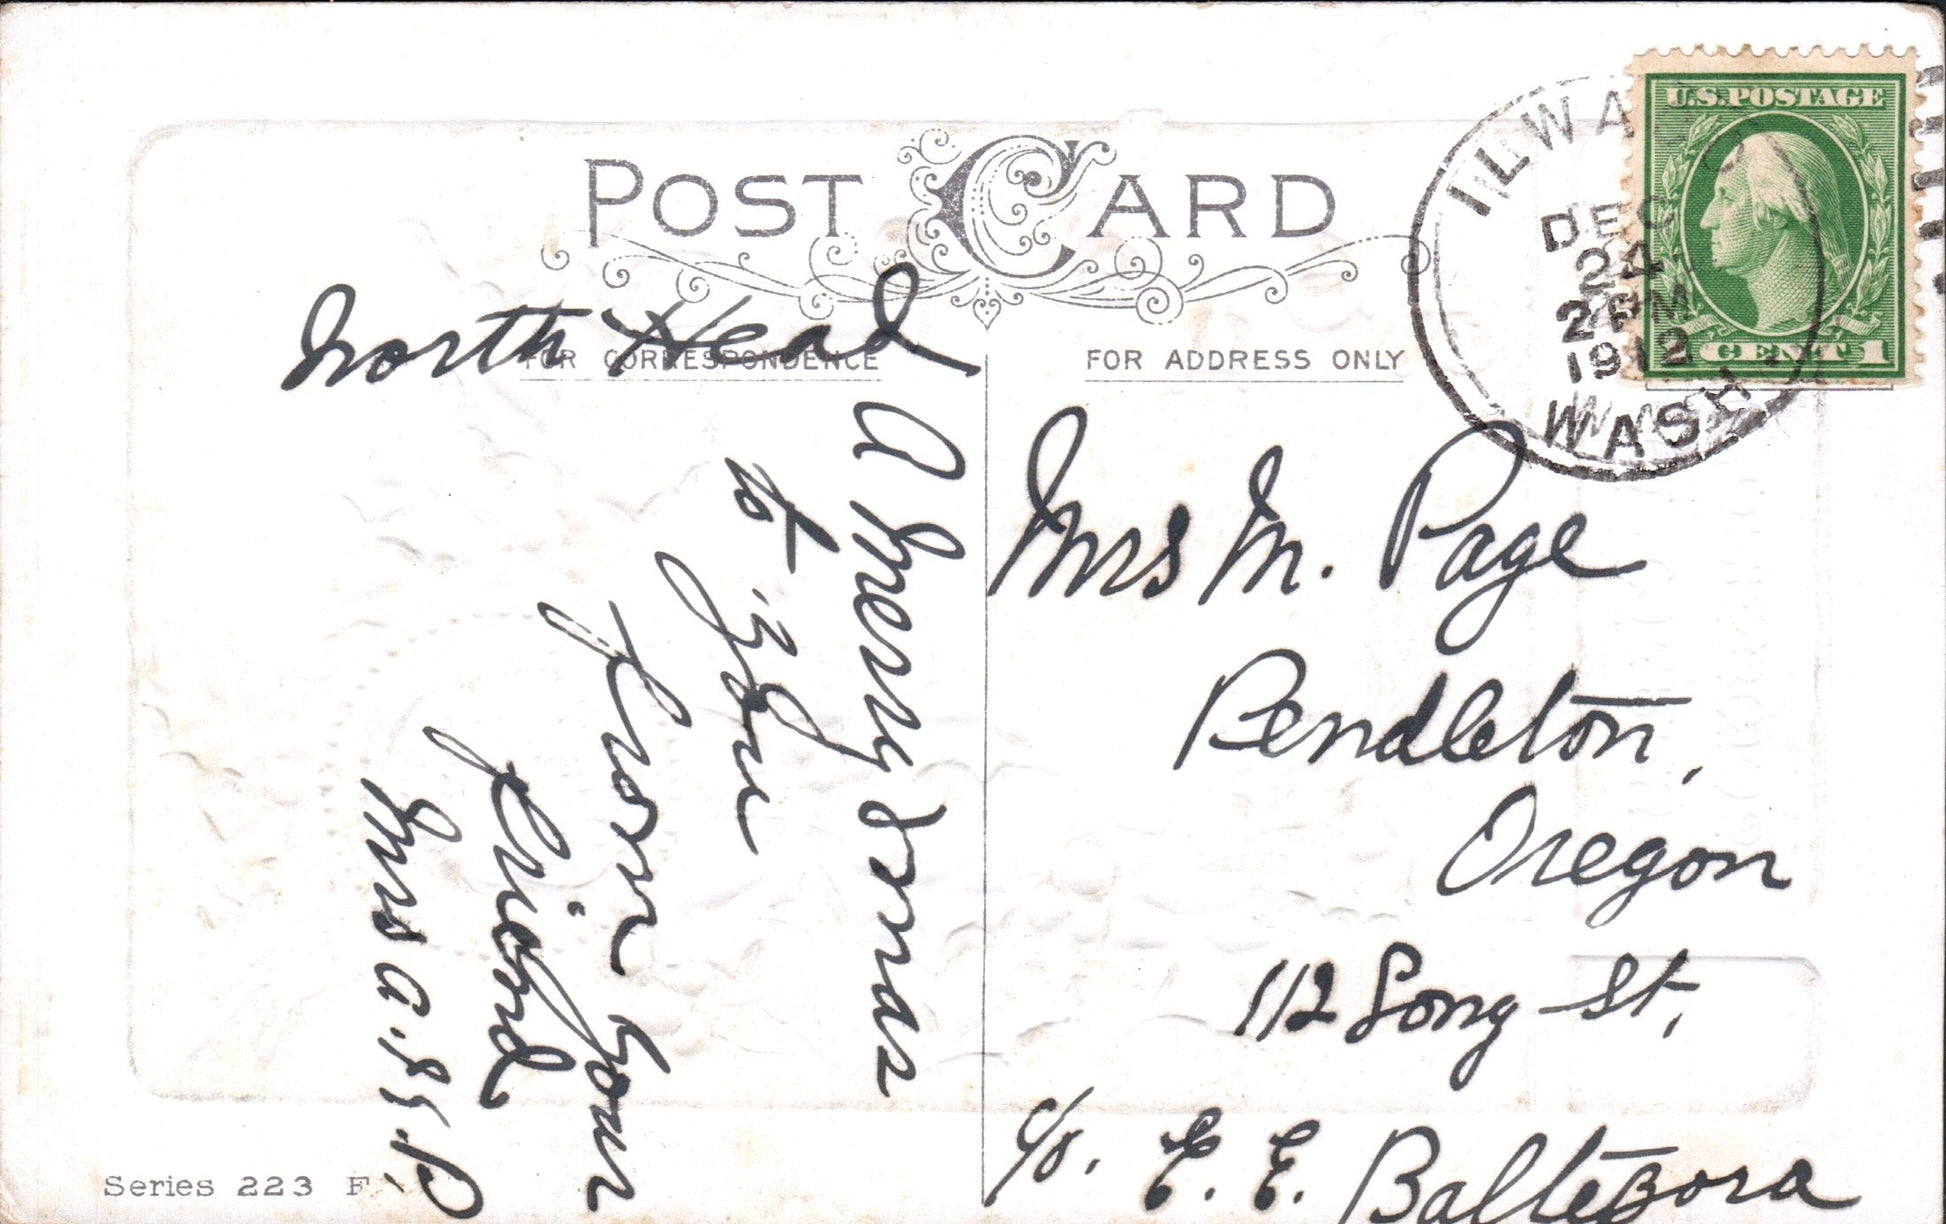 POST CARD
FOR CORRESPONDENCE
FOR ADDRESS ONLY
U.S. POSTAGE
CENT 1
ILWACO
DEC
24
2 PM
1912
WASH.
North Head
A Merry Xmas
to You
from Your
friend
Mrs M. Page
Pendleton,
Oregon
112 Long St,
c/o. E. E.
Series 223 F